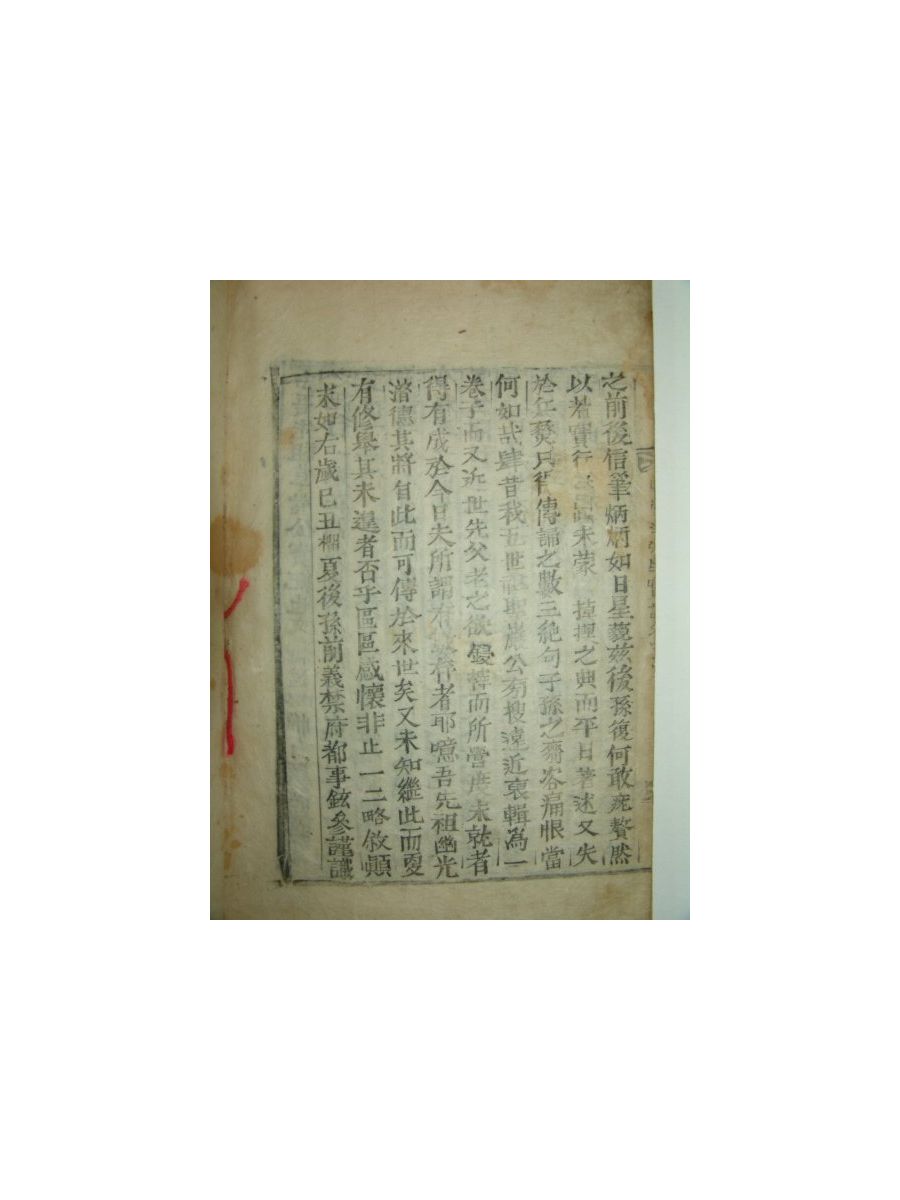 之前後信筆炳炳如日星藐玆後孫復何敢疣贅然
以若實行未蒙之典而平日著述又失
於兵燹只得傳誦之數三絶句子孫之齎咨痛恨當
何如哉肆昔我五世祖聖巖公旁搜遠近裒輯爲一
卷子而又近世先父老之欲鋟梓而所營度未就者
得有成於今日夫所謂有待者耶噫吾先祖幽光
潛德其將自此而可傳於來世矣又未知繼此而更
有修擧其未遑者否乎區區感懷非止一二略敘顚
末如右歲己丑榴夏後孫前義禁府都事鉉參謹識